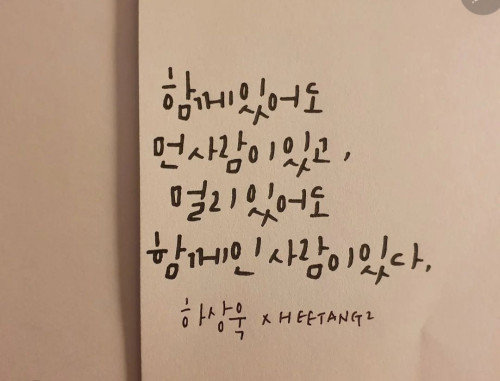 함께있어도
먼사람이있고,
멀리있어도
함께인 사람이있다.
하상욱 x HEETANG2